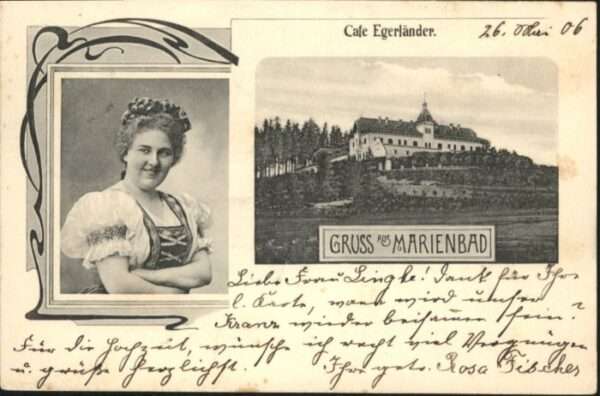 Cafe Egerländer.
26. Mai 06
GRUSS AUS MARIENBAD
Liebe Frau Lingke! Dank für Ihre
l. Karte, wann wird unser
Kranz wieder beisammen sein?
Für die Hochzeit, wünsche ich recht viel Vergnügen
u. grüße herzlichst. Ihre getr. Rosa Fischer